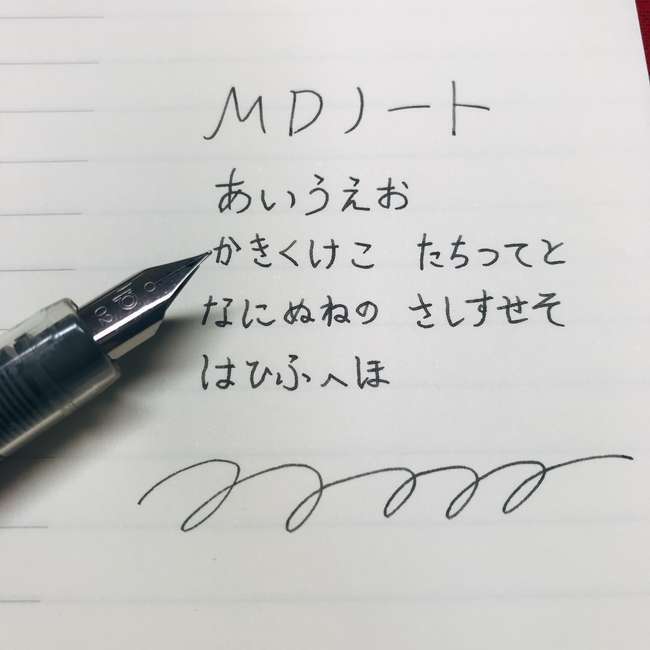 MDノート
あいうえお
かきくけこ たちってと
なにぬねの さしすせそ
はひふへほ